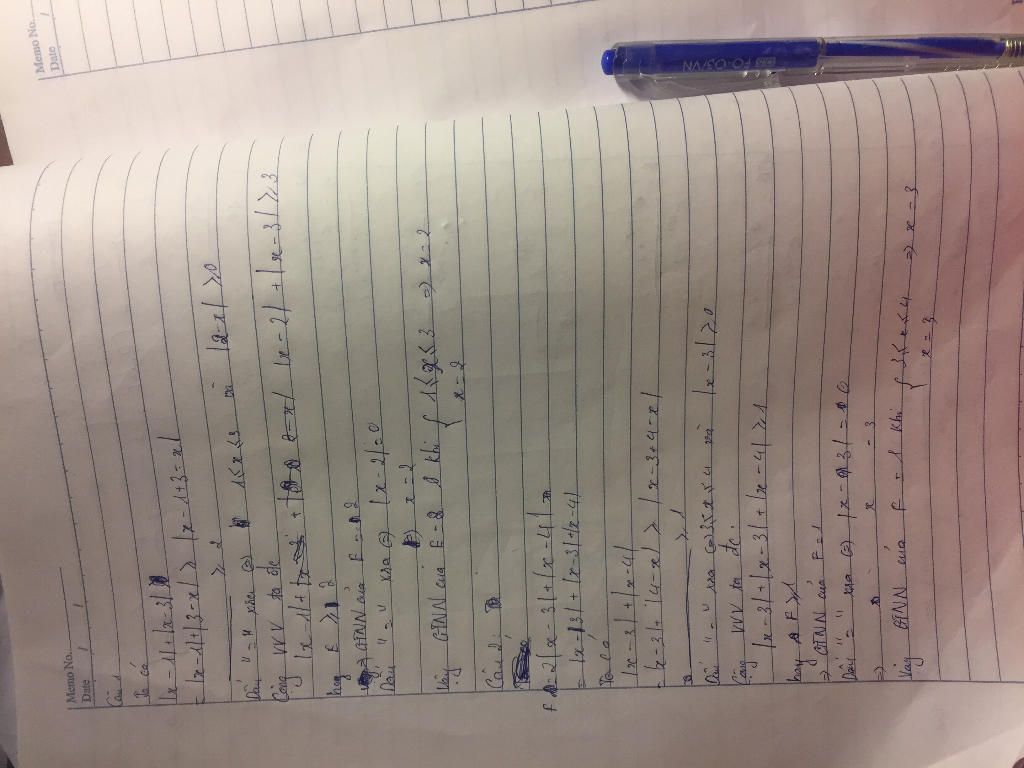 Memo No.
Date / /
Câu 1
Ta có
|x-1|+|x-3|
= |x-1|+|3-x| ≥ |x-1+3-x|
≥ 2
Dấu "=" xảy ⇔ 1≤x≤3 mà |2-x| ≥0
Cộng VV ta đc
|x-1|+|x |x-2|+|x-3| ≥
hay E ≥ 2
GTNN của E = 2
Dấu "=" xảy ⇔ |x-2|=0
⇔ x=2
Vậy GTNN của E=2 khi { 1≤x≤3 ⇒ x=2
x=2
Câu 2:
F = 2|x-3|+|x-4|
= |x-3|+|x-3|+|x-4|
Ta có
|x-3|+|x-4|
|x-3|+|4-x| ≥ |x-3+4-x|
≥ 1
Dấu "=" xảy ⇔ 3≤x≤4 mà |x-3|≥0
Cộng VV ta đc
|x-3|+|x-3|+|x-4| ≥1
hay F ≥1
⇒ GTNN của F=1
Dấu "=" xảy ⇔ |x-3|=0
⇒ x=3
Vậy GTNN của F=1 khi { 3≤x≤4 ⇒ x=3
x=3
Memo No.
Date /
FO-03/VN